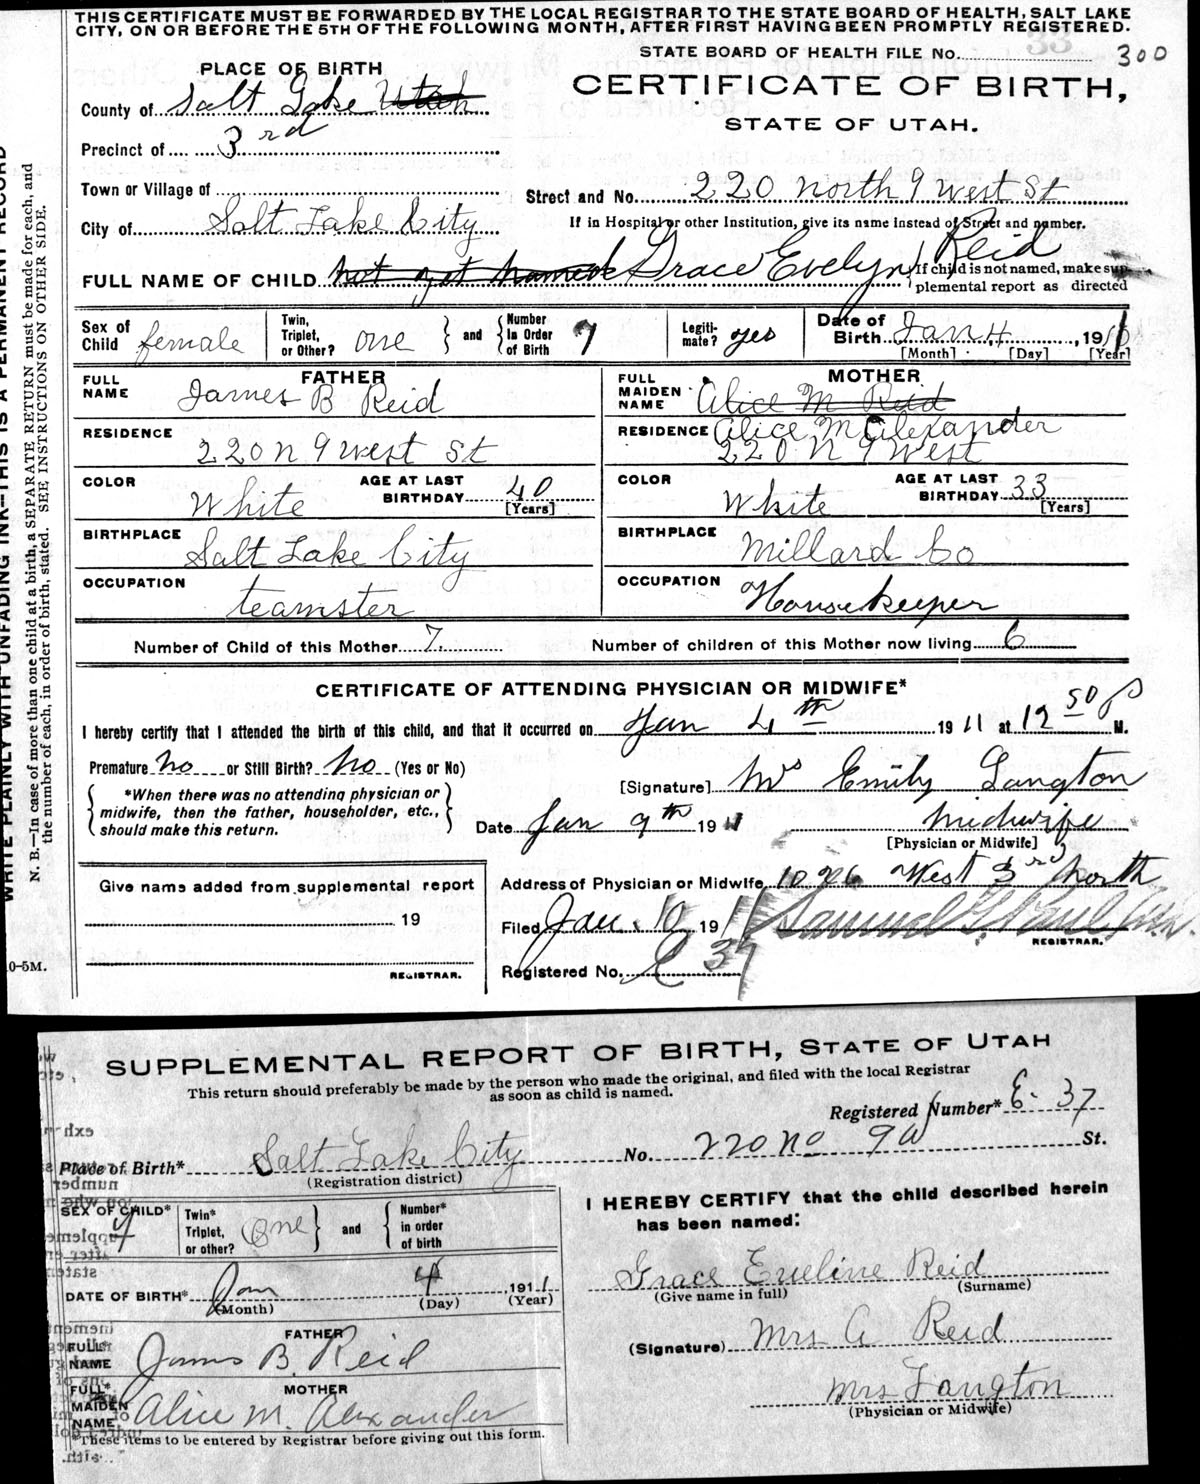 THIS CERTIFICATE MUST BE FORWARDED BY THE LOCAL REGISTRAR TO THE STATE BOARD OF HEALTH, SALT LAKE
CITY, ON OR BEFORE THE 5TH OF THE FOLLOWING MONTH, AFTER FIRST HAVING BEEN PROMPTLY REGISTERED.
33
STATE BOARD OF HEALTH FILE No. 300
PLACE OF BIRTH
CERTIFICATE OF BIRTH,
STATE OF UTAH.
County of Salt Lake Utah
Precinct of 3rd
Town or Village of
Street and No. 220 North 9 West St
City of Salt Lake City
If in Hospital or other Institution, give its name instead of Street and number.
FULL NAME OF CHILD not yet named Grace Evelyn Reid
If child is not named, make sup-
plemental report as directed
Sex of Child female
Twin, Triplet, or Other? one and Number in Order of Birth 7
Legitimate? yes
Date of Birth Jan 4, 191
[Month] [Day] [Year]
FATHER
FULL NAME James B Reid
RESIDENCE 220 N 9 West St
COLOR White
AGE AT LAST BIRTHDAY 40 [Years]
BIRTHPLACE Salt Lake City
OCCUPATION teamster
MOTHER
FULL MAIDEN NAME Alice M Reid
Alice M Alexander
RESIDENCE 220 N 9 West
COLOR White
AGE AT LAST BIRTHDAY 33 [Years]
BIRTHPLACE Millard Co
OCCUPATION Housekeeper
Number of Child of this Mother 7
Number of children of this Mother now living 6
CERTIFICATE OF ATTENDING PHYSICIAN OR MIDWIFE*
I hereby certify that I attended the birth of this child, and that it occurred on Jan 4th 1911 at 12 50 P M.
Premature No or Still Birth? No (Yes or No)
*When there was no attending physician or
midwife, then the father, householder, etc.,
should make this return.
[Signature] Mrs Emily Langton
Date Jan 9th 1911 Midwife
[Physician or Midwife]
Give name added from supplemental report
19
REGISTRAR.
Address of Physician or Midwife 1026 West 3rd North
Filed Jan. 10 1911
REGISTRAR.
Registered No. 37
0-5M.
WRITE PLAINLY WITH UNFADING INK—THIS IS A PERMANENT RECORD
N. B.—In case of more than one child at a birth, a SEPARATE RETURN must be made for each, and
the number of each, in order of birth, stated. SEE INSTRUCTION ON OTHER SIDE.
SUPPLEMENTAL REPORT OF BIRTH, STATE OF UTAH
This return should preferably be made by the person who made the original, and filed with the local Registrar
as soon as child is named.
Registered Number* E- 37
Place of Birth* Salt Lake City No. 220 No 9 W St.
(Registration district)
SEX OF CHILD*
Twin* Triplet, or other? One and Number* in order of birth
DATE OF BIRTH* Jan 4, 1911
(Month) (Day) (Year)
FATHER
FULL* NAME James B. Reid
MOTHER
FULL* MAIDEN NAME Alice M. Alexander
*These items to be entered by Registrar before giving out this form.
I HEREBY CERTIFY that the child described herein
has been named:
Grace Eveline Reid
(Give name in full) (Surname)
(Signature) Mrs A Reid
Mrs Langton
(Physician or Midwife)